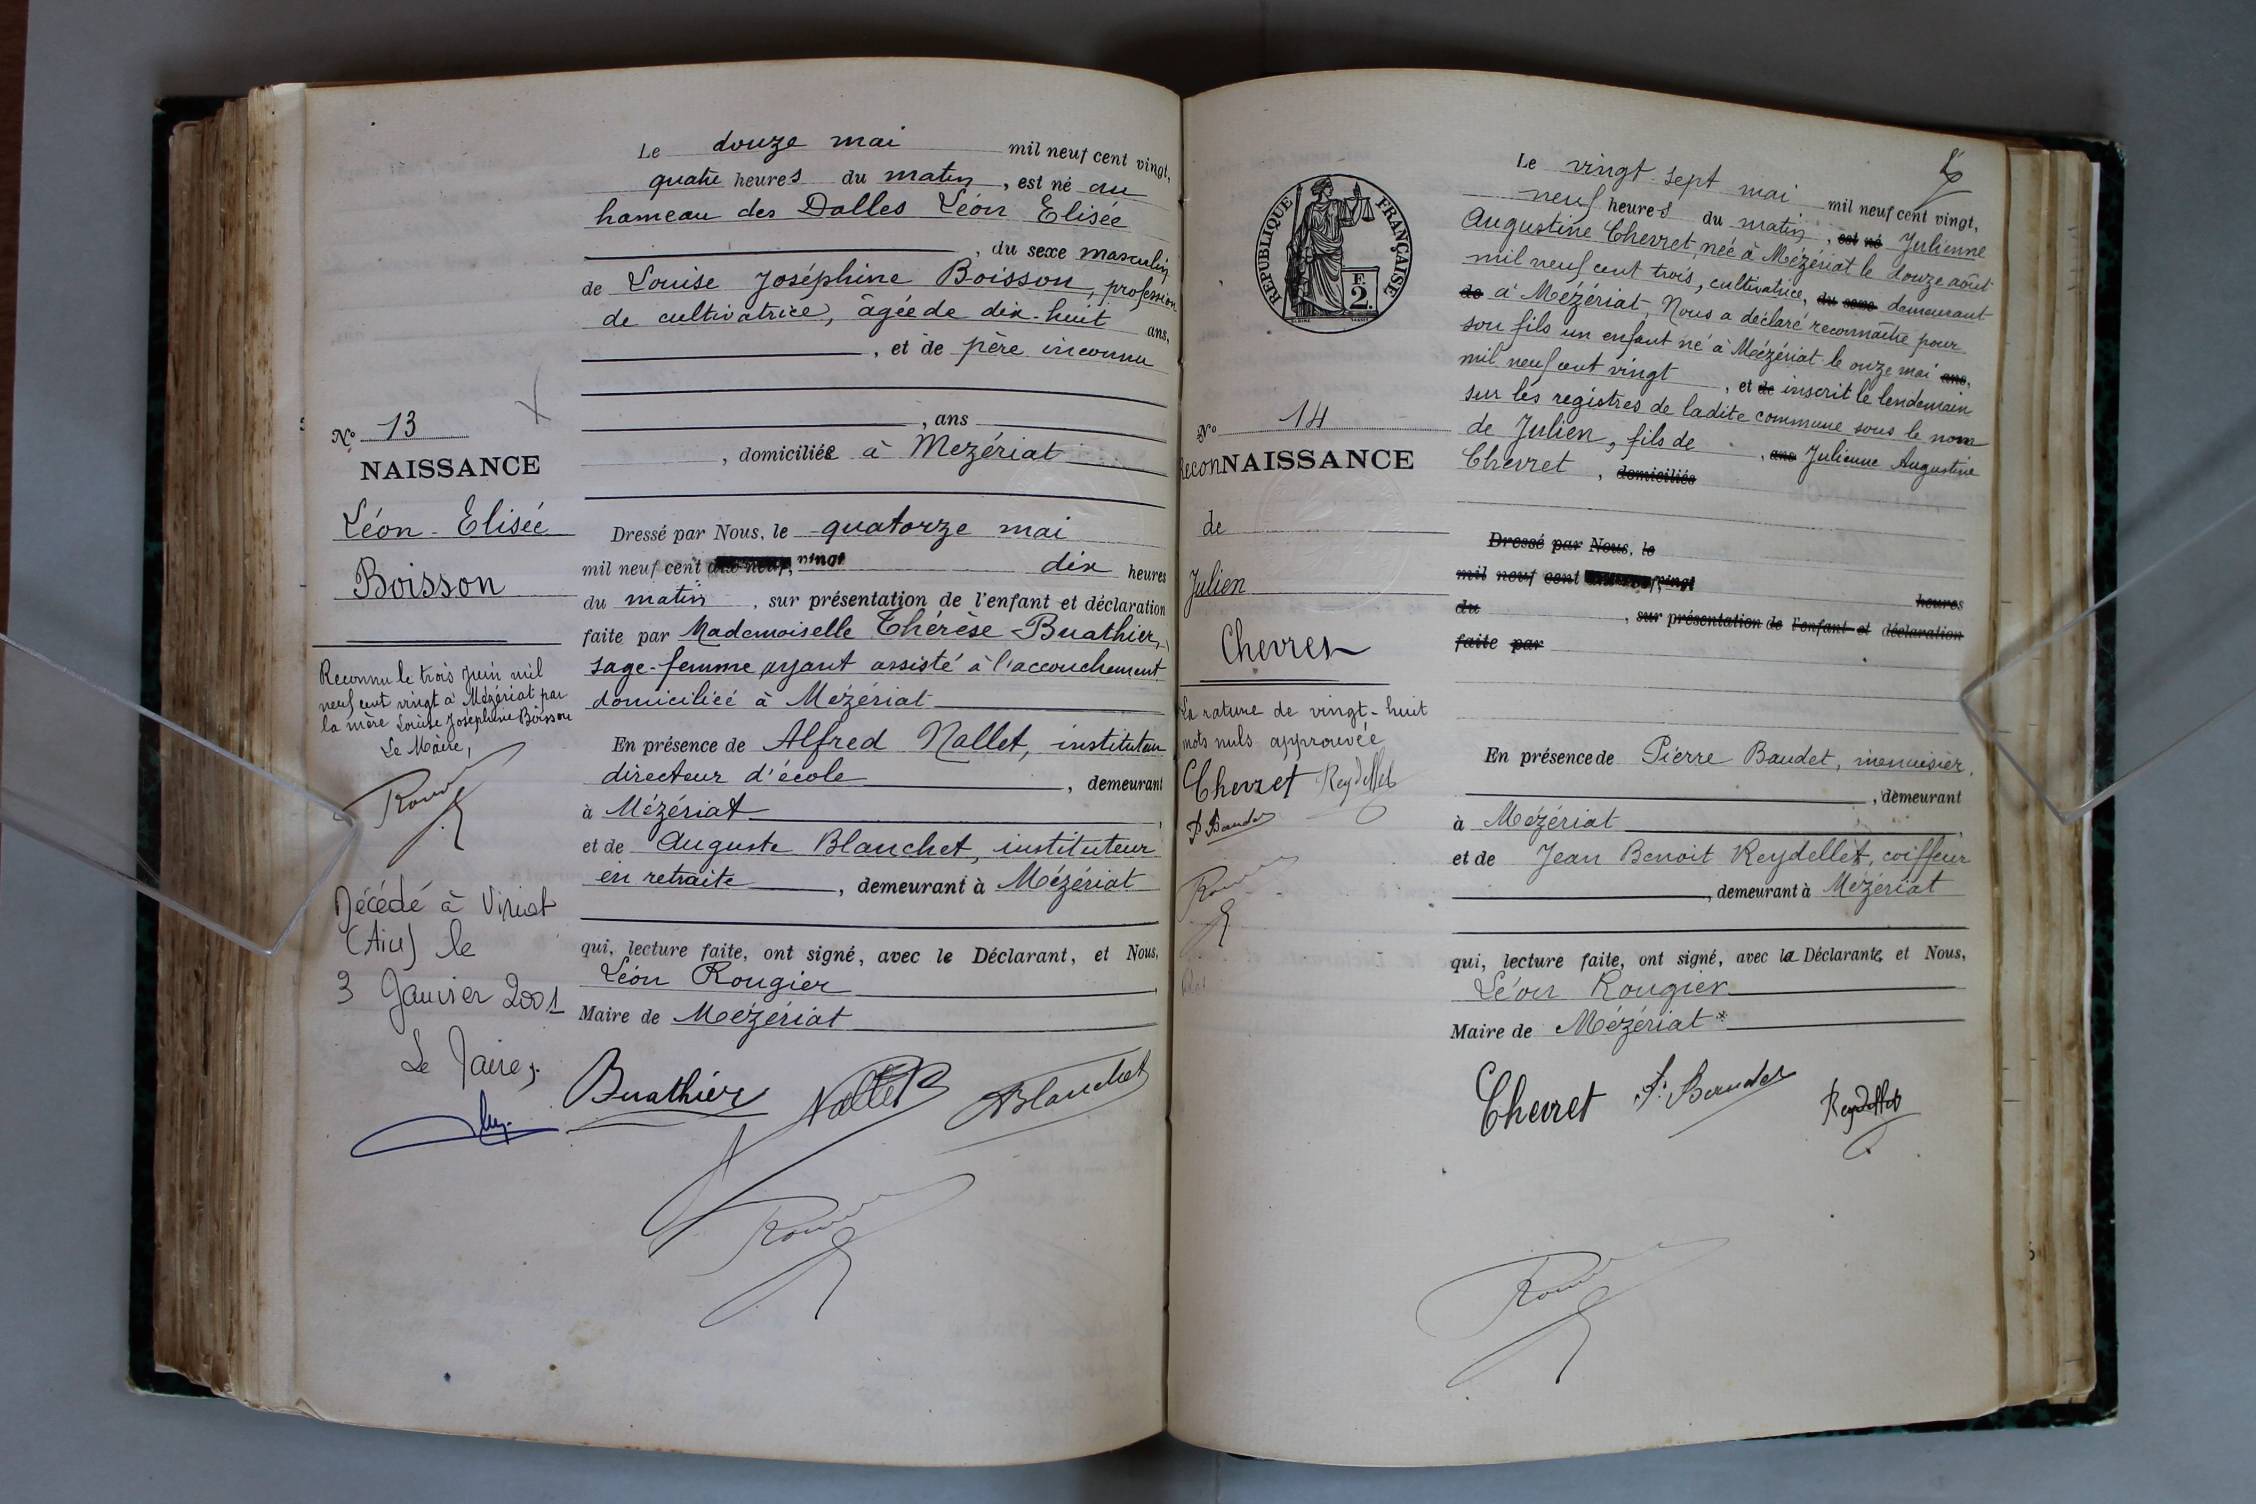 Le douze mai mil neuf cent vingt,
quatre heures du matin, est né au
hameau des Dalles Léon Elisée
, du sexe masculin
de Louise Joséphine Boisson, profession
de cultivatrice, âgée de dix-huit ans,
, et de père inconnu
, ans
, domiciliée à Mezériat
Dressé par Nous, le quatorze mai
mil neuf cent vingt dix heures
du matin, sur présentation de l'enfant et déclaration
faite par Mademoiselle Thérèse Buathier,
sage-femme ayant assisté à l'accouchement
domiciliée à Mézériat
En présence de Alfred Nallet, instituteur
directeur d'école, demeurant
à Mézériat,
et de Auguste Blanchet, instituteur
en retraite, demeurant à Mézériat
qui, lecture faite, ont signé, avec le Déclarant, et Nous,
Léon Rougier,
Maire de Mézériat
Buathier Nallet Blanchet
N° 13
NAISSANCE
Léon-Elisée
Boisson
Reconnu le trois Juin mil
neuf cent vingt à Mézériat par
la mère Louise Joséphine Boisson
Le Maire,
Décédé à Viriat
(Ain) le
3 Janvier 2001
Le Maire,
RÉPUBLIQUE FRANÇAISE
F.
2.
N° 14
ReconNAISSANCE
de
Julien
Chevret
La rature de vingt-huit
mots nuls approuvée
Chevret Reydellet
P. Baudet
Le vingt-sept mai mil neuf cent vingt,
neuf heures du matin, est né Julienne
Augustine Chevret, née à Mézériat le douze août
mil neuf cent trois, cultivatrice, du sexe demeurant
de à Mézériat, Nous a déclaré reconnaître pour
son fils un enfant né à Mézériat le onze mai ans,
mil neuf cent vingt, et de inscrit le lendemain
sur les registres de ladite commune sous le nom
de Julien, fils de, ans Julienne Augustine
Chevret, domiciliés
Dressé par Nous, le
mil neuf cent vingt
heures
du, sur présentation de l'enfant et déclaration
faite par
En présence de Pierre Baudet, menuisier,
, demeurant
à Mézériat,
et de Jean Benoit Reydellet, coiffeur
, demeurant à Mézériat
qui, lecture faite, ont signé, avec la Déclarante, et Nous,
Léon Rougier
Maire de Mézériat
Chevret P. Baudet Reydellet